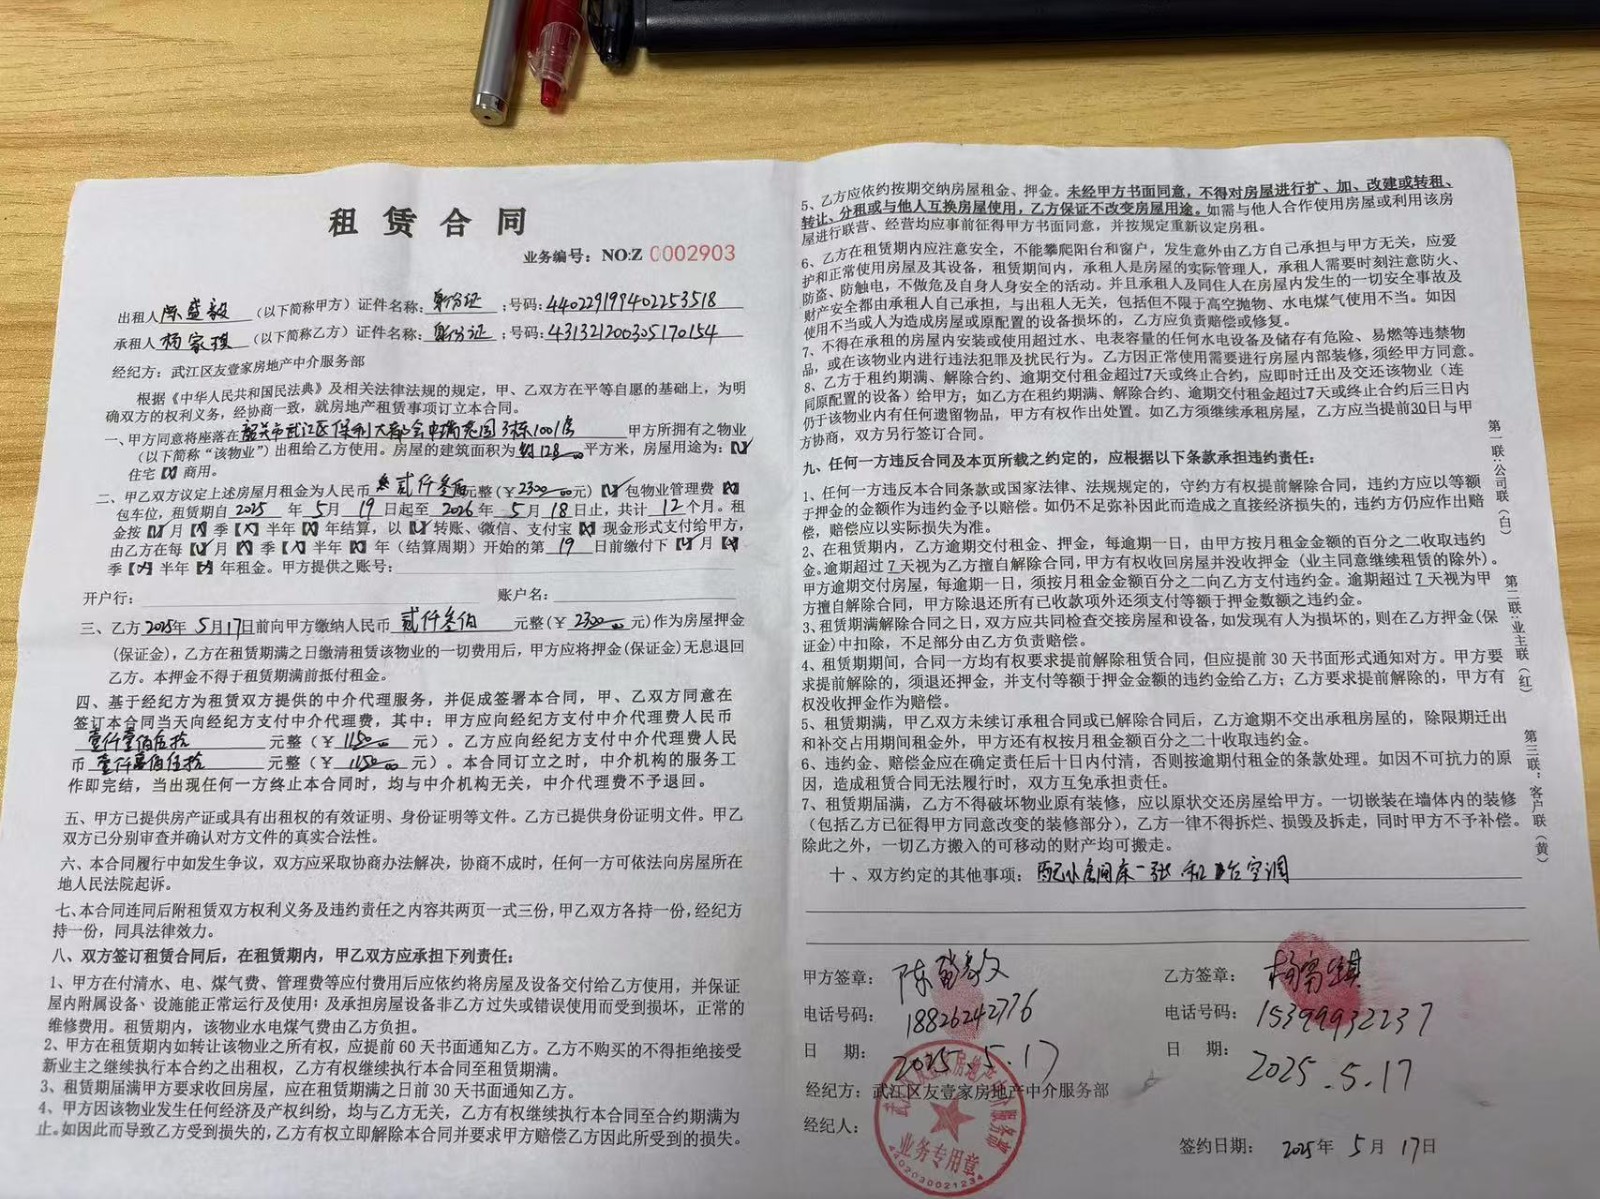 租赁合同
业务编号：NO:Z 0002903
出租人 陈盛毅 （以下简称甲方）证件名称：身份证 ；号码：440229199402253518
承租人 杨家琪 （以下简称乙方）证件名称：身份证 ；号码：431321200305170154
经纪方：武江区友壹家房地产中介服务部
根据《中华人民共和国民法典》及相关法律法规的规定，甲、乙双方在平等自愿的基础上，为明
确双方的权利义务，经协商一致，就房地产租赁事项订立本合同。
一、甲方同意将座落在 韶关市武江区保利大都会中瑞花园3栋1001房 甲方所拥有之物业
（以下简称“该物业”）出租给乙方使用。房屋的建筑面积为 约128 平方米，房屋用途为：【√】
住宅【×】商用。
二、甲乙双方议定上述房屋月租金为人民币 贰仟叁佰元整（￥2300.00元）【√】包物业管理费【×】
包车位，租赁期自 2025 年 5月 19 日起至 2026 年 5 月 18 日止，共计 12 个月。租
金按【√】月【×】季【×】半年【×】年结算，以【√】转账、微信、支付宝【×】现金形式支付给甲方，
由乙方在每【√】月【×】季【×】半年【×】年（结算周期）开始的第 19 日前缴付下【√】月【×】
季【×】半年【×】年租金。甲方提供之账号：
开户行： 账户名：
三、乙方 2025年 5月17日前向甲方缴纳人民币 贰仟叁佰 元整（￥ 2300.00 元）作为房屋押金
（保证金），乙方在租赁期满之日缴清租赁该物业的一切费用后，甲方应将押金(保证金)无息退回
乙方。本押金不得于租赁期满前抵付租金。
四、基于经纪方为租赁双方提供的中介代理服务，并促成签署本合同，甲、乙双方同意在
签订本合同当天向经纪方支付中介代理费，其中：甲方应向经纪方支付中介代理费人民币
壹仟壹佰伍拾 元整（￥ 1150.00 元）。乙方应向经纪方支付中介代理费人民
币 壹仟壹佰伍拾 元整（￥ 1150.00 元）。本合同订立之时，中介机构的服务工
作即完结，当出现任何一方终止本合同时，均与中介机构无关，中介代理费不予退回。
五、甲方已提供房产证或具有出租权的有效证明、身份证明等文件。乙方已提供身份证明文件。甲乙
双方已分别审查并确认对方文件的真实合法性。
六、本合同履行中如发生争议，双方应采取协商办法解决，协商不成时，任何一方可依法向房屋所在
地人民法院起诉。
七、本合同连同后附租赁双方权利义务及违约责任之内容共两页一式三份，甲乙双方各持一份，经纪方
持一份，同具法律效力。
八、双方签订租赁合同后，在租赁期内，甲乙双方应承担下列责任：
1、甲方在付清水、电、煤气费、管理费等应付费用后应依约将房屋及设备交付给乙方使用，并保证
屋内附属设备、设施能正常运行及使用；及承担房屋设备非乙方过失或错误使用而受到损坏，正常的
维修费用。租赁期内，该物业水电煤气费由乙方负担。
2、甲方在租赁期内如转让该物业之所有权，应提前 60 天书面通知乙方。乙方不购买的不得拒绝接受
新业主之继续执行本合约之出租权，乙方有权继续执行本合同至租赁期满。
3、租赁期届满甲方要求收回房屋，应在租赁期满之日前 30 天书面通知乙方。
4、甲方因该物业发生任何经济及产权纠纷，均与乙方无关，乙方有权继续执行本合同至合约期满为
止。如因此而导致乙方受到损失的，乙方有权立即解除本合同并要求甲方赔偿乙方因此所受到的损失。
5、乙方应依约按期交纳房屋租金、押金。未经甲方书面同意，不得对房屋进行扩、加、改建或转租、
转让、分租或与他人互换房屋使用，乙方保证不改变房屋用途。如需与他人合作使用房屋或利用该房
屋进行联营、经营均应事前征得甲方书面同意，并按规定重新议定房租。
6、乙方在租赁期内应注意安全，不能攀爬阳台和窗户，发生意外由乙方自己承担与甲方无关，应爱
护和正常使用房屋及其设备，租赁期间内，承租人是房屋的实际管理人，承租人需要时刻注意防火、
防盗、防触电，不做危及自身人身安全的活动。并且承租人及同住人在房屋内发生的一切安全事故及
财产安全都由承租人自己承担，与出租人无关，包括但不限于高空抛物、水电煤气使用不当。如因
使用不当或人为造成房屋或原配置的设备损坏的，乙方应负责赔偿或修复。
7、不得在承租的房屋内安装或使用超过水、电表容量的任何水电设备及储存有危险、易燃等违禁物
品，或在该物业内进行违法犯罪及扰民行为。乙方因正常使用需要进行房屋内部装修，须经甲方同意。
8、乙方于租约期满、解除合约、逾期交付租金超过7天或终止合约，应即时迁出及交还该物业（连
同原配置的设备）给甲方；如乙方在租约期满、解除合约、逾期交付租金超过7天或终止合约后三日内
仍于该物业内有任何遗留物品，甲方有权作出处置。如乙方须继续承租房屋，乙方应当提前30日与甲
方协商，双方另行签订合同。
九、任何一方违反合同及本页所载之约定的，应根据以下条款承担违约责任：
1、任何一方违反本合同条款或国家法律、法规规定的，守约方有权提前解除合同，违约方应以等额
于押金的金额作为违约金予以赔偿。如仍不足弥补因此而造成之直接经济损失的，违约方仍应作出赔
偿，赔偿应以实际损失为准。
2、在租赁期内，乙方逾期交付租金、押金，每逾期一日，由甲方按月租金金额的百分之二收取违约
金。逾期超过 7 天视为乙方擅自解除合同，甲方有权收回房屋并没收押金（业主同意继续租赁的除外）。
甲方逾期交付房屋，每逾期一日，须按月租金金额百分之二向乙方支付违约金。逾期超过 7 天视为甲
方擅自解除合同，甲方除退还所有已收款项外还须支付等额于押金数额之违约金。
3、租赁期满解除合同之日，双方应共同检查交接房屋和设备，如发现有人为损坏的，则在乙方押金(保
证金)中扣除，不足部分由乙方负责赔偿。
4、租赁期期间，合同一方均有权要求提前解除租赁合同，但应提前 30 天书面形式通知对方。甲方要
求提前解除的，须退还押金，并支付等额于押金金额的违约金给乙方；乙方要求提前解除的，甲方有
权没收押金作为赔偿。
5、租赁期满，甲乙双方未续订承租合同或已解除合同后，乙方逾期不交出承租房屋的，除限期迁出
和补交占用期间租金外，甲方还有权按月租金额百分之二十收取违约金。
6、违约金、赔偿金应在确定责任后十日内付清，否则按逾期付租金的条款处理。如因不可抗力的原
因，造成租赁合同无法履行时，双方互免承担责任。
7、租赁期届满，乙方不得破坏物业原有装修，应以原状交还房屋给甲方。一切嵌装在墙体内的装修
（包括乙方已征得甲方同意改变的装修部分），乙方一律不得拆烂、损毁及拆走，同时甲方不予补偿。
除此之外，一切乙方搬入的可移动的财产均可搬走。
十、双方约定的其他事项：配小房间床一张 和 台空调
甲方签章：陈盛毅
电话号码：18826242776
日 期：2025.5.17
乙方签章：杨家琪
电话号码：15399932237
日 期：2025.5.17
经纪方：武江区友壹家房地产中介服务部
经纪人：
签约日期：2025年 5 月 17日
武江区友壹家房地产中介服务部
业务专用章
4402030021234
第一联：公司联（白）
第二联：业主联（红）
第三联：客户联（黄）